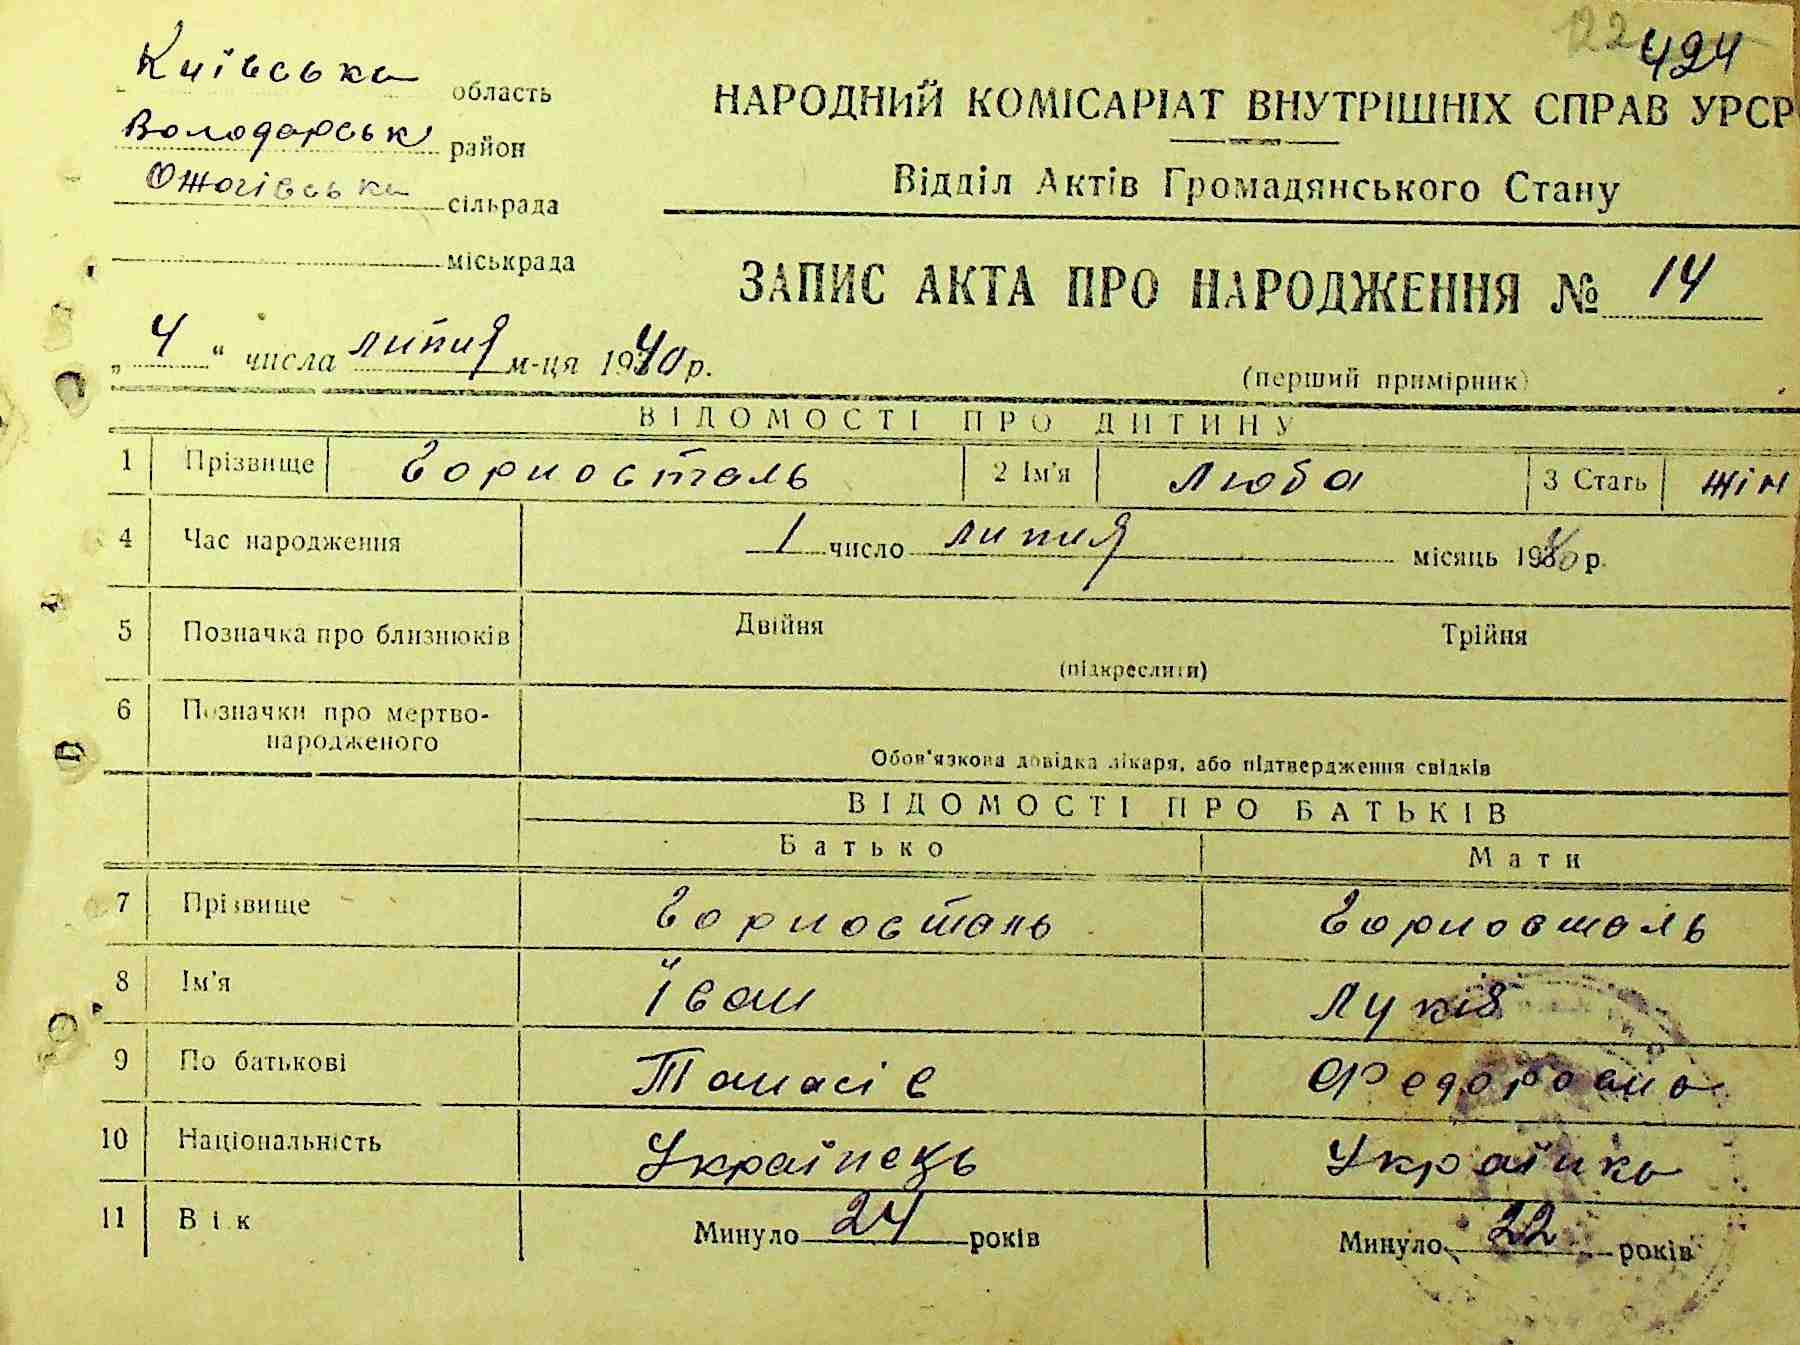 424
Київська область
Володарськ район
Ожогівська сільрада
міськрада
НАРОДНИЙ КОМІСАРІАТ ВНУТРІШНІХ СПРАВ УРСР
Відділ Актів Громадянського Стану
ЗАПИС АКТА ПРО НАРОДЖЕННЯ № 14
„4“ числа липня м-ця 1940 р.
(перший примірник)
ВІДОМОСТІ ПРО ДИТИНУ
1 Прізвище Горносталь 2 Ім'я Люба 3 Стать жін
4 Час народження 1 число липня місяць 1940 р.
5 Позначка про близнюків Двійня Трійня
(підкреслити)
6 Позначки про мертво-
народженого
Обов'язкова довідка лікаря, або підтвердження свідків
ВІДОМОСТІ ПРО БАТЬКІВ
Батько Мати
7 Прізвище Горносталь Горносталь
8 Ім'я Іван
9 По батькові Танасів Федоровна
10 Національність Українець Українка
11 Вік Минуло 24 років Минуло 22 років